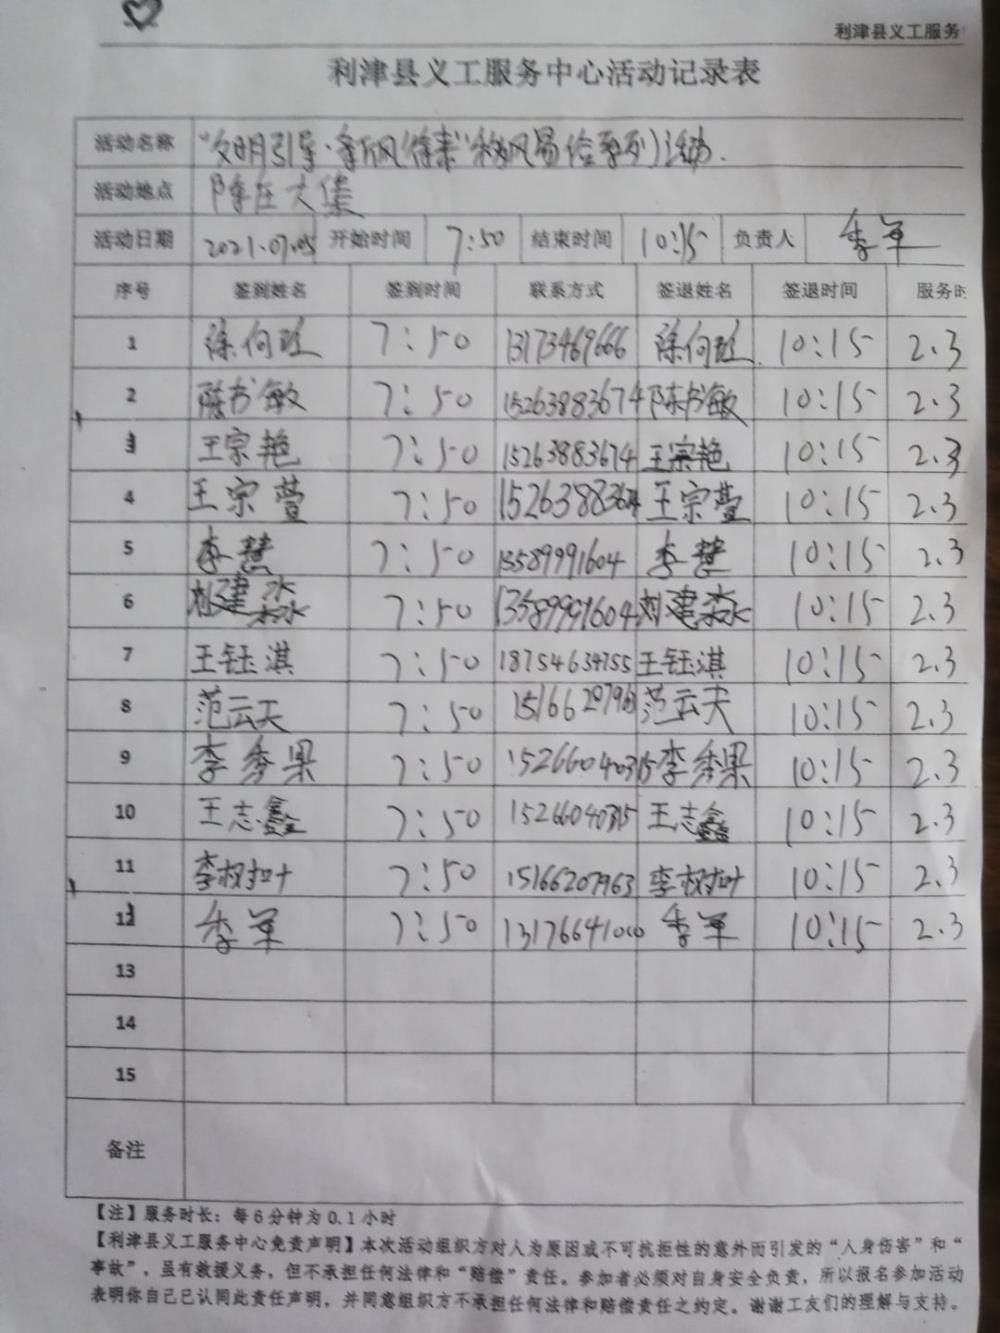 利津县义工服务
利津县义工服务中心活动记录表
活动名称 "文明引导·季风传来"移风易俗系列活动.
活动地点 陈庄大集
活动日期 2021.07.05 开始时间 7:50 结束时间 10:15 负责人 李军
序号 签到姓名 签到时间 联系方式 签退姓名 签退时间 服务时
1 徐向旺 7:50 13173469666 徐向旺 10:15 2.3
2 陈书敏 7:50 15263883674 陈书敏 10:15 2.3
3 王宗艳 7:50 15263883674 王宗艳 10:15 2.3
4 王宗萱 7:50 王宗萱 10:15 2.3
5 李慧 7:50 13589991604 李慧 10:15 2.3
6 刘建淼 7:50 13589991604 刘建淼 10:15 2.3
7 王钰淇 7:50 18754634755 王钰淇 10:15 2.3
8 范云天 7:50 范云天 10:15 2.3
9 李秀果 7:50 15266040315 李秀果 10:15 2.3
10 王志鑫 7:50 15266040315 王志鑫 10:15 2.3
11 7:50 15166207963 10:15 2.3
12 李军 7:50 13176641000 李军 10:15 2.3
13
14
15
备注
【注】服务时长：每6分钟为0.1小时
【利津县义工服务中心免责声明】本次活动组织方对人为原因或不可抗拒性的意外而引发的“人身伤害”和“
事故”，虽有救援义务，但不承担任何法律和“赔偿”责任。参加者必须对自身安全负责，所以报名参加活动
表明你自己已认同此责任声明，并同意组织方不承担任何法律和赔偿责任之约定。谢谢工友们的理解与支持。